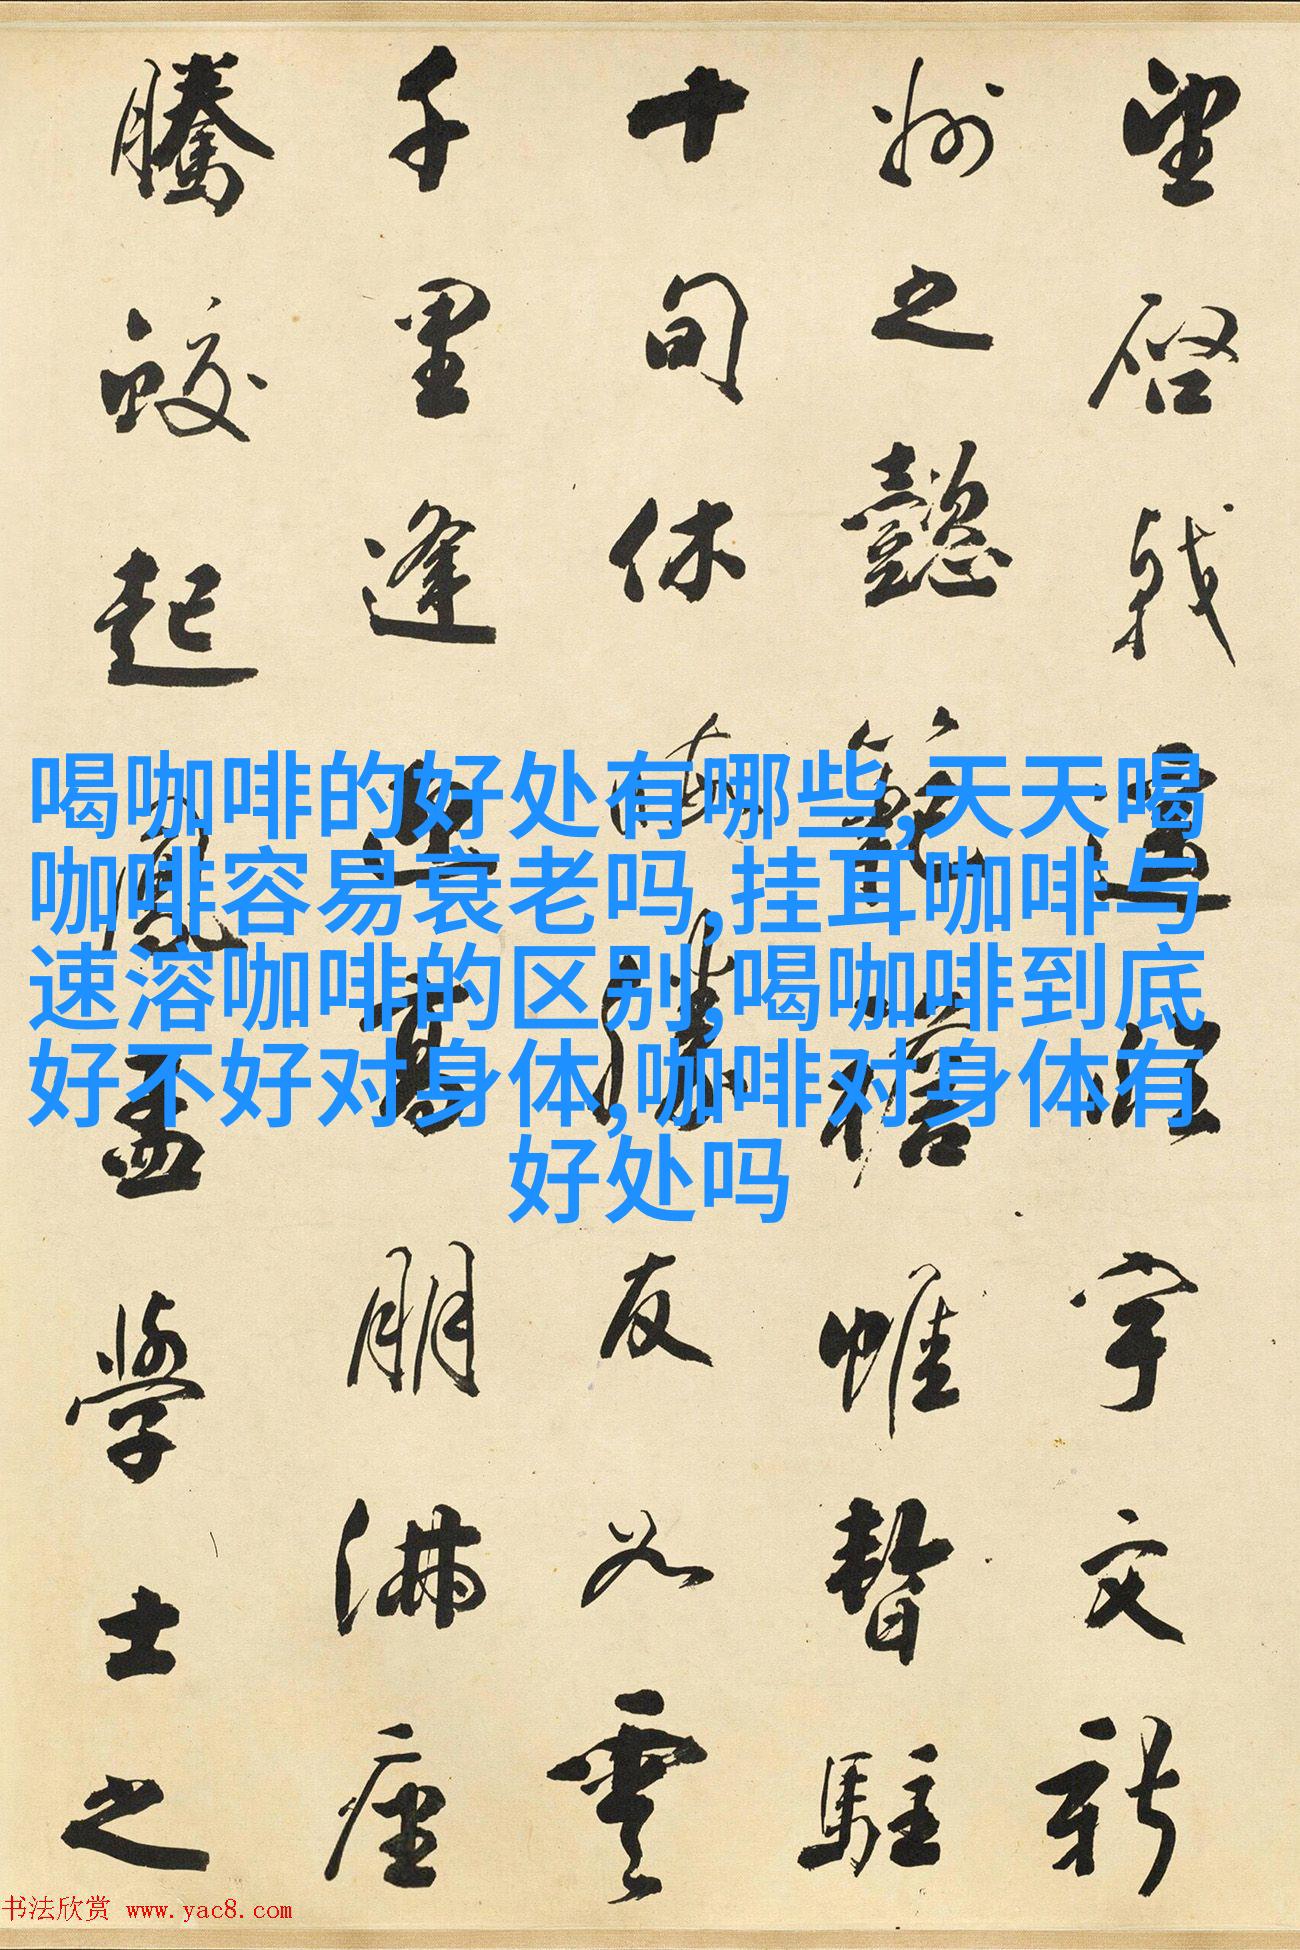 望啓戟遥臨宇文新
州之懿範襜帷暫駐
十旬休勝友如雲
千里逢迎高朋滿座
騰蛟起鳳孟學士之
喝咖啡的好处有哪些,天天喝
咖啡容易衰老吗,挂耳咖啡与
速溶咖啡的区别,喝咖啡到底
好不好对身体,咖啡对身体有
好处吗
书法欣赏 www.yac8.com